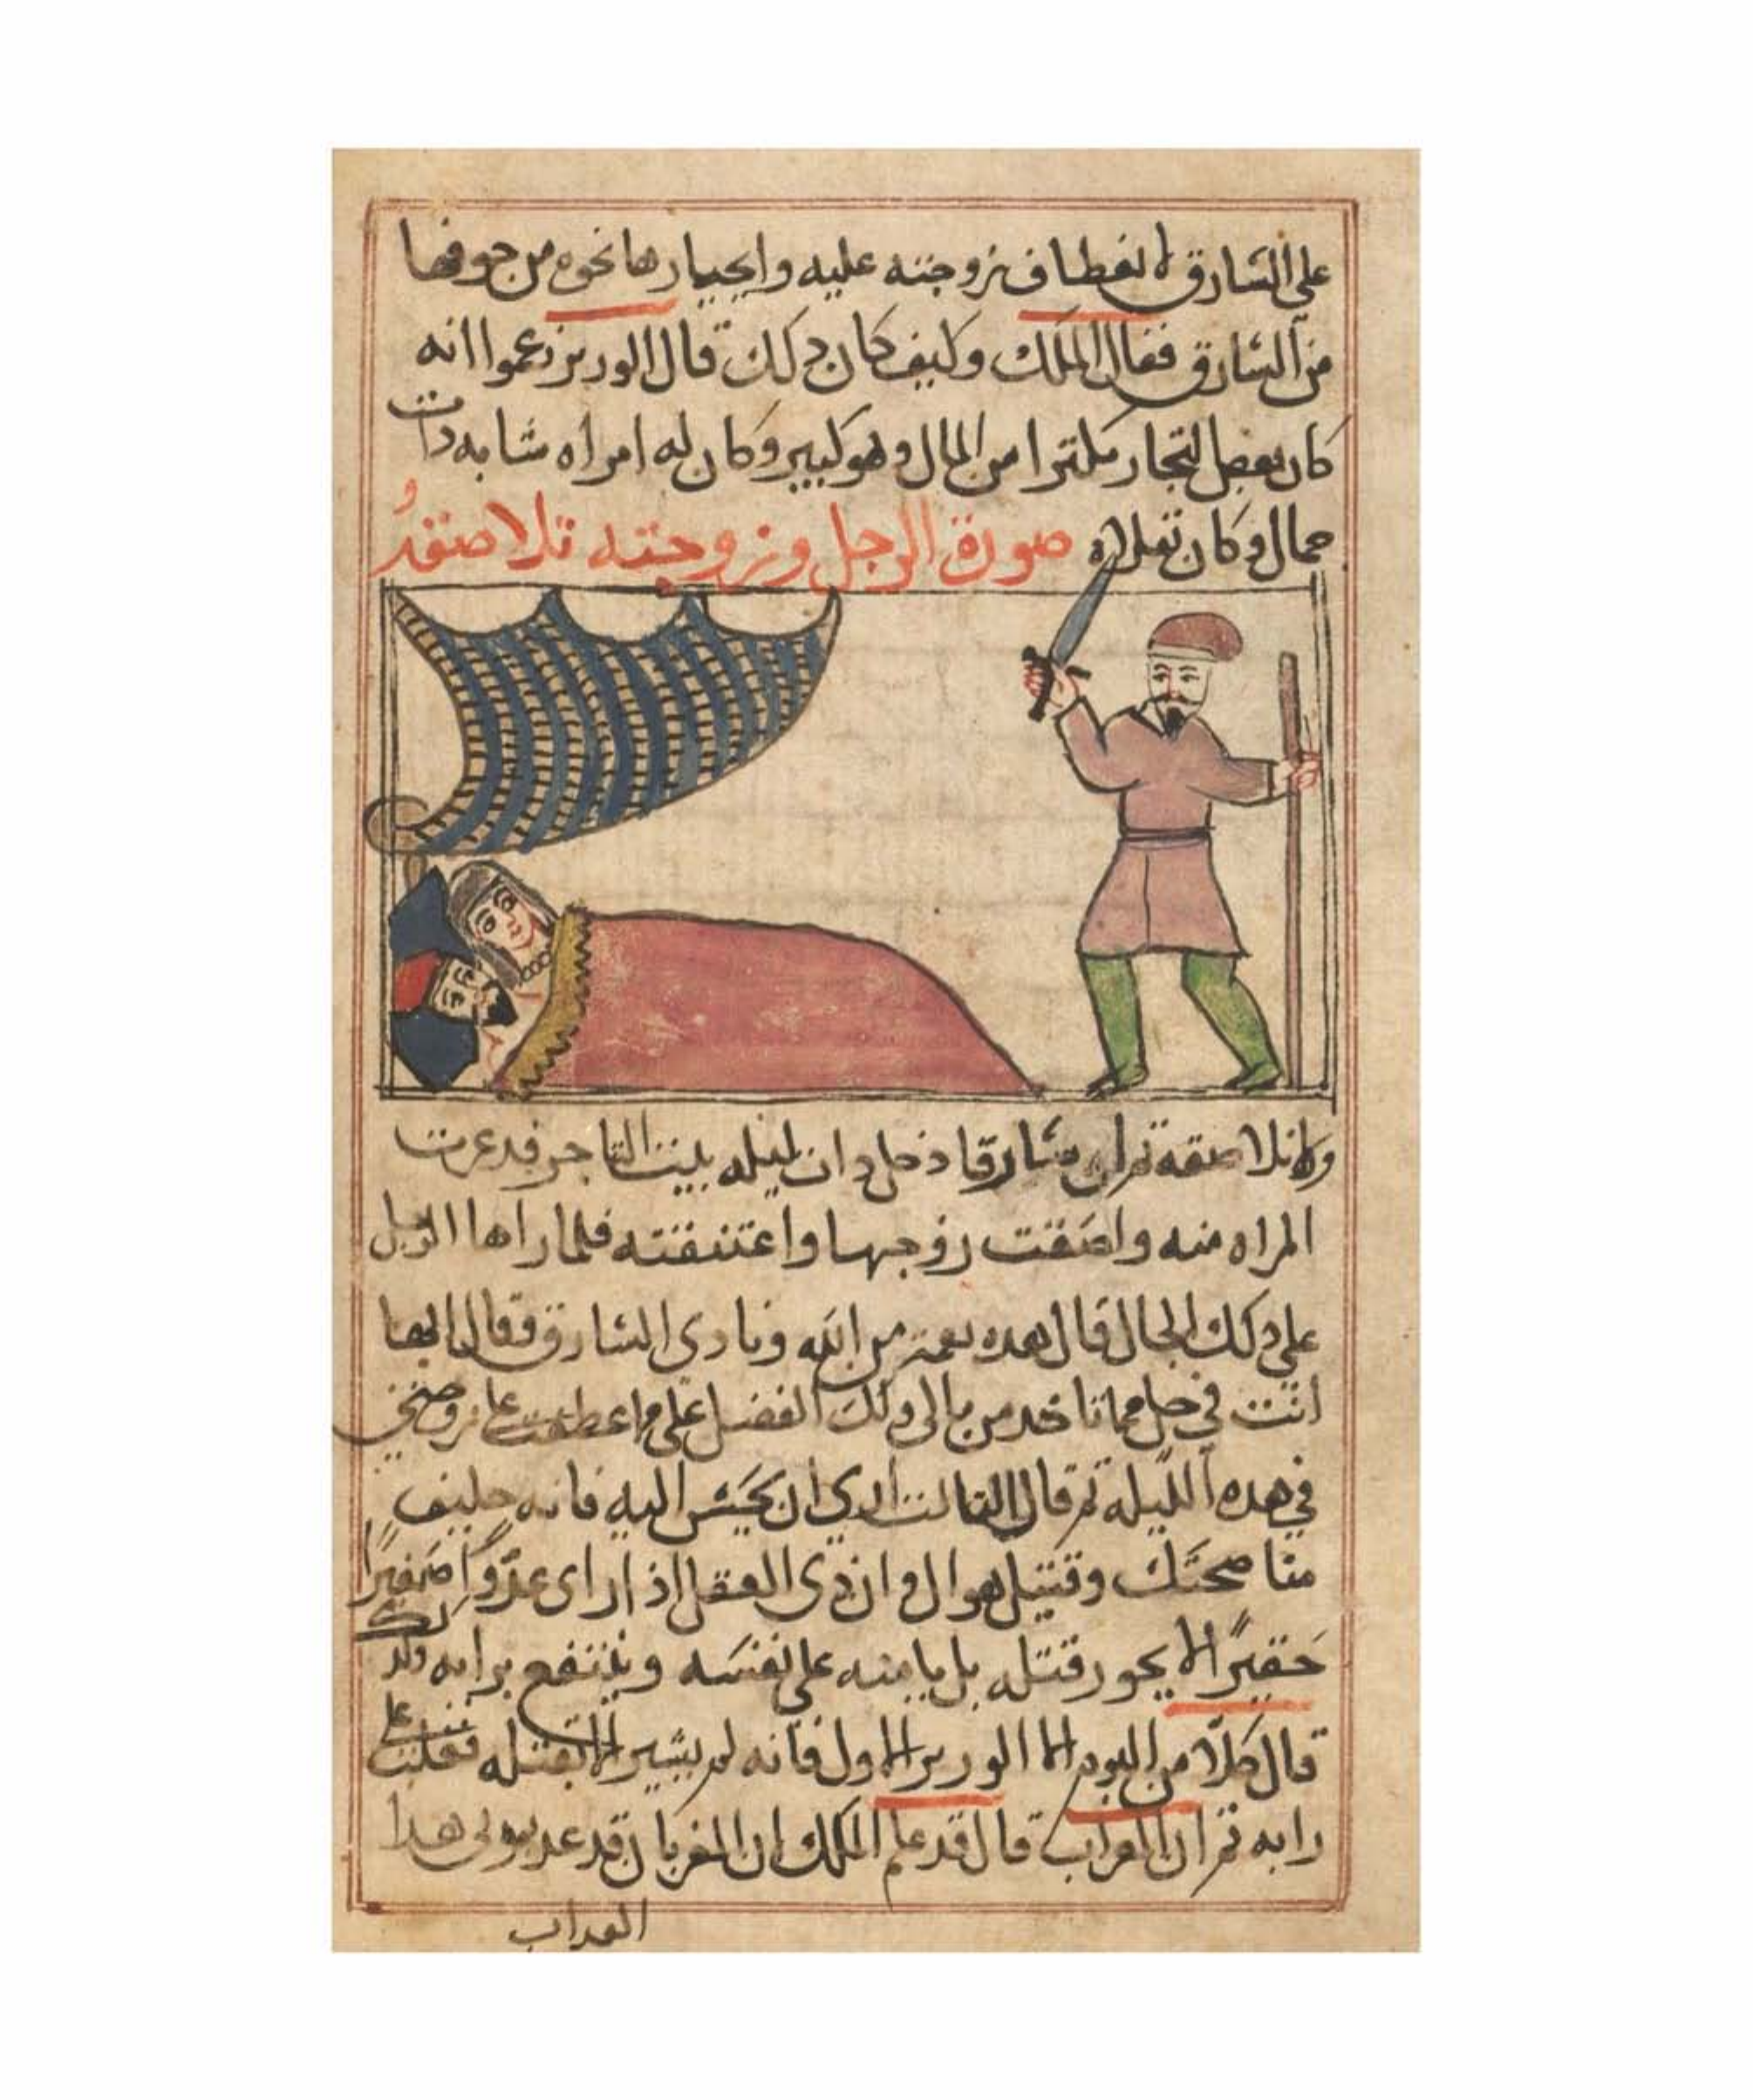 على السارق لانعطاف زوجته عليه وانحيازها نحوه من خوفها
من السارق فقال الملك وكيف كان دلك قال الوزير زعموا انه
كان بعض التجار مكترا من المال وهو كبير وكان له امراه شابه دات
جمال وكان تقلاه صورة الرجل وزوجته تلاصقه
ولا تلاصقه تم ان سارقا دخل دات ليله بيت التاجر فدعرت
المراه منه والصقت زوجها واعتنقته فلما راها الرجل
على دلك الحال قال هده نعمة من الله ونادى السارق وقال ايها
انت في حل مما تاخد من مالى ولك الفضل على ما عطفت على زوجتي
في هده الليله تم قال التالت ارى ان تحسن اليه فانه خليق
مناصحتك وان دى العقل اذا راى عدوا صغيرا
حقيرا لا يجوز قتله بل يامنه على نفسه وينتفع برايه
قال كلا من البوم الا الوزير الاول فانه لم يشير الا بقتله
رايه تم ان الغراب قال قد علم الملك ان الغربان قد
الغراب